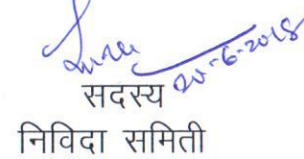 20-6-2018
सदस्य
निविदा समिती